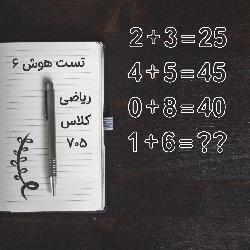 تست هوش ۶
ریاضی
کلاس
۷۰۵
2+3=25
4+5=45
0+8=40
1+6=??